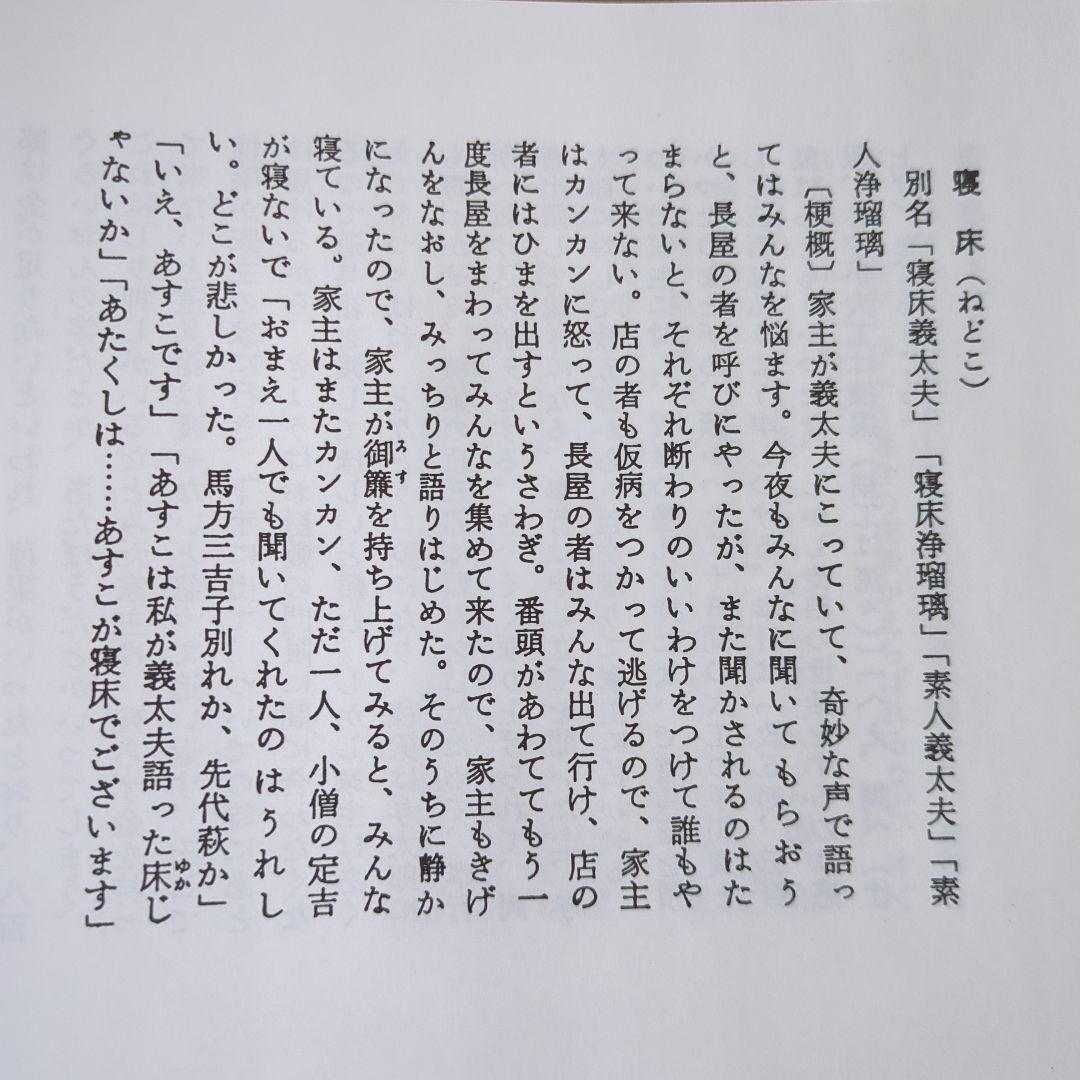 寝　床（ねどこ）
別名「寝床義太夫」「寝床浄瑠璃」「素人義太夫」「素
人浄瑠璃」
〔梗概〕家主が義太夫にこっていて、奇妙な声で語っ
てはみんなを悩ます。今夜もみんなに聞いてもらおう
と、長屋の者を呼びにやったが、また聞かされるのはた
まらないと、それぞれ断わりのいいわけをつけて誰もや
って来ない。店の者も仮病をつかって逃げるので、家主
はカンカンに怒って、長屋の者はみんな出て行け、店の
者にはひまを出すというさわぎ。番頭があわててもう一
度長屋をまわってみんなを集めて来たので、家主もきげ
んをなおし、みっちりと語りはじめた。そのうちに静か
になったので、家主が御簾を持ち上げてみると、みんな
寝ている。家主はまたカンカン、ただ一人、小僧の定吉
が寝ないで「おまえ一人でも聞いてくれたのはうれし
い。どこが悲しかった。馬方三吉子別れか、先代萩か」
「いえ、あすこです」「あすこは私が義太夫語った床じ
ゃないか」「あたくしは……あすこが寝床でございます」